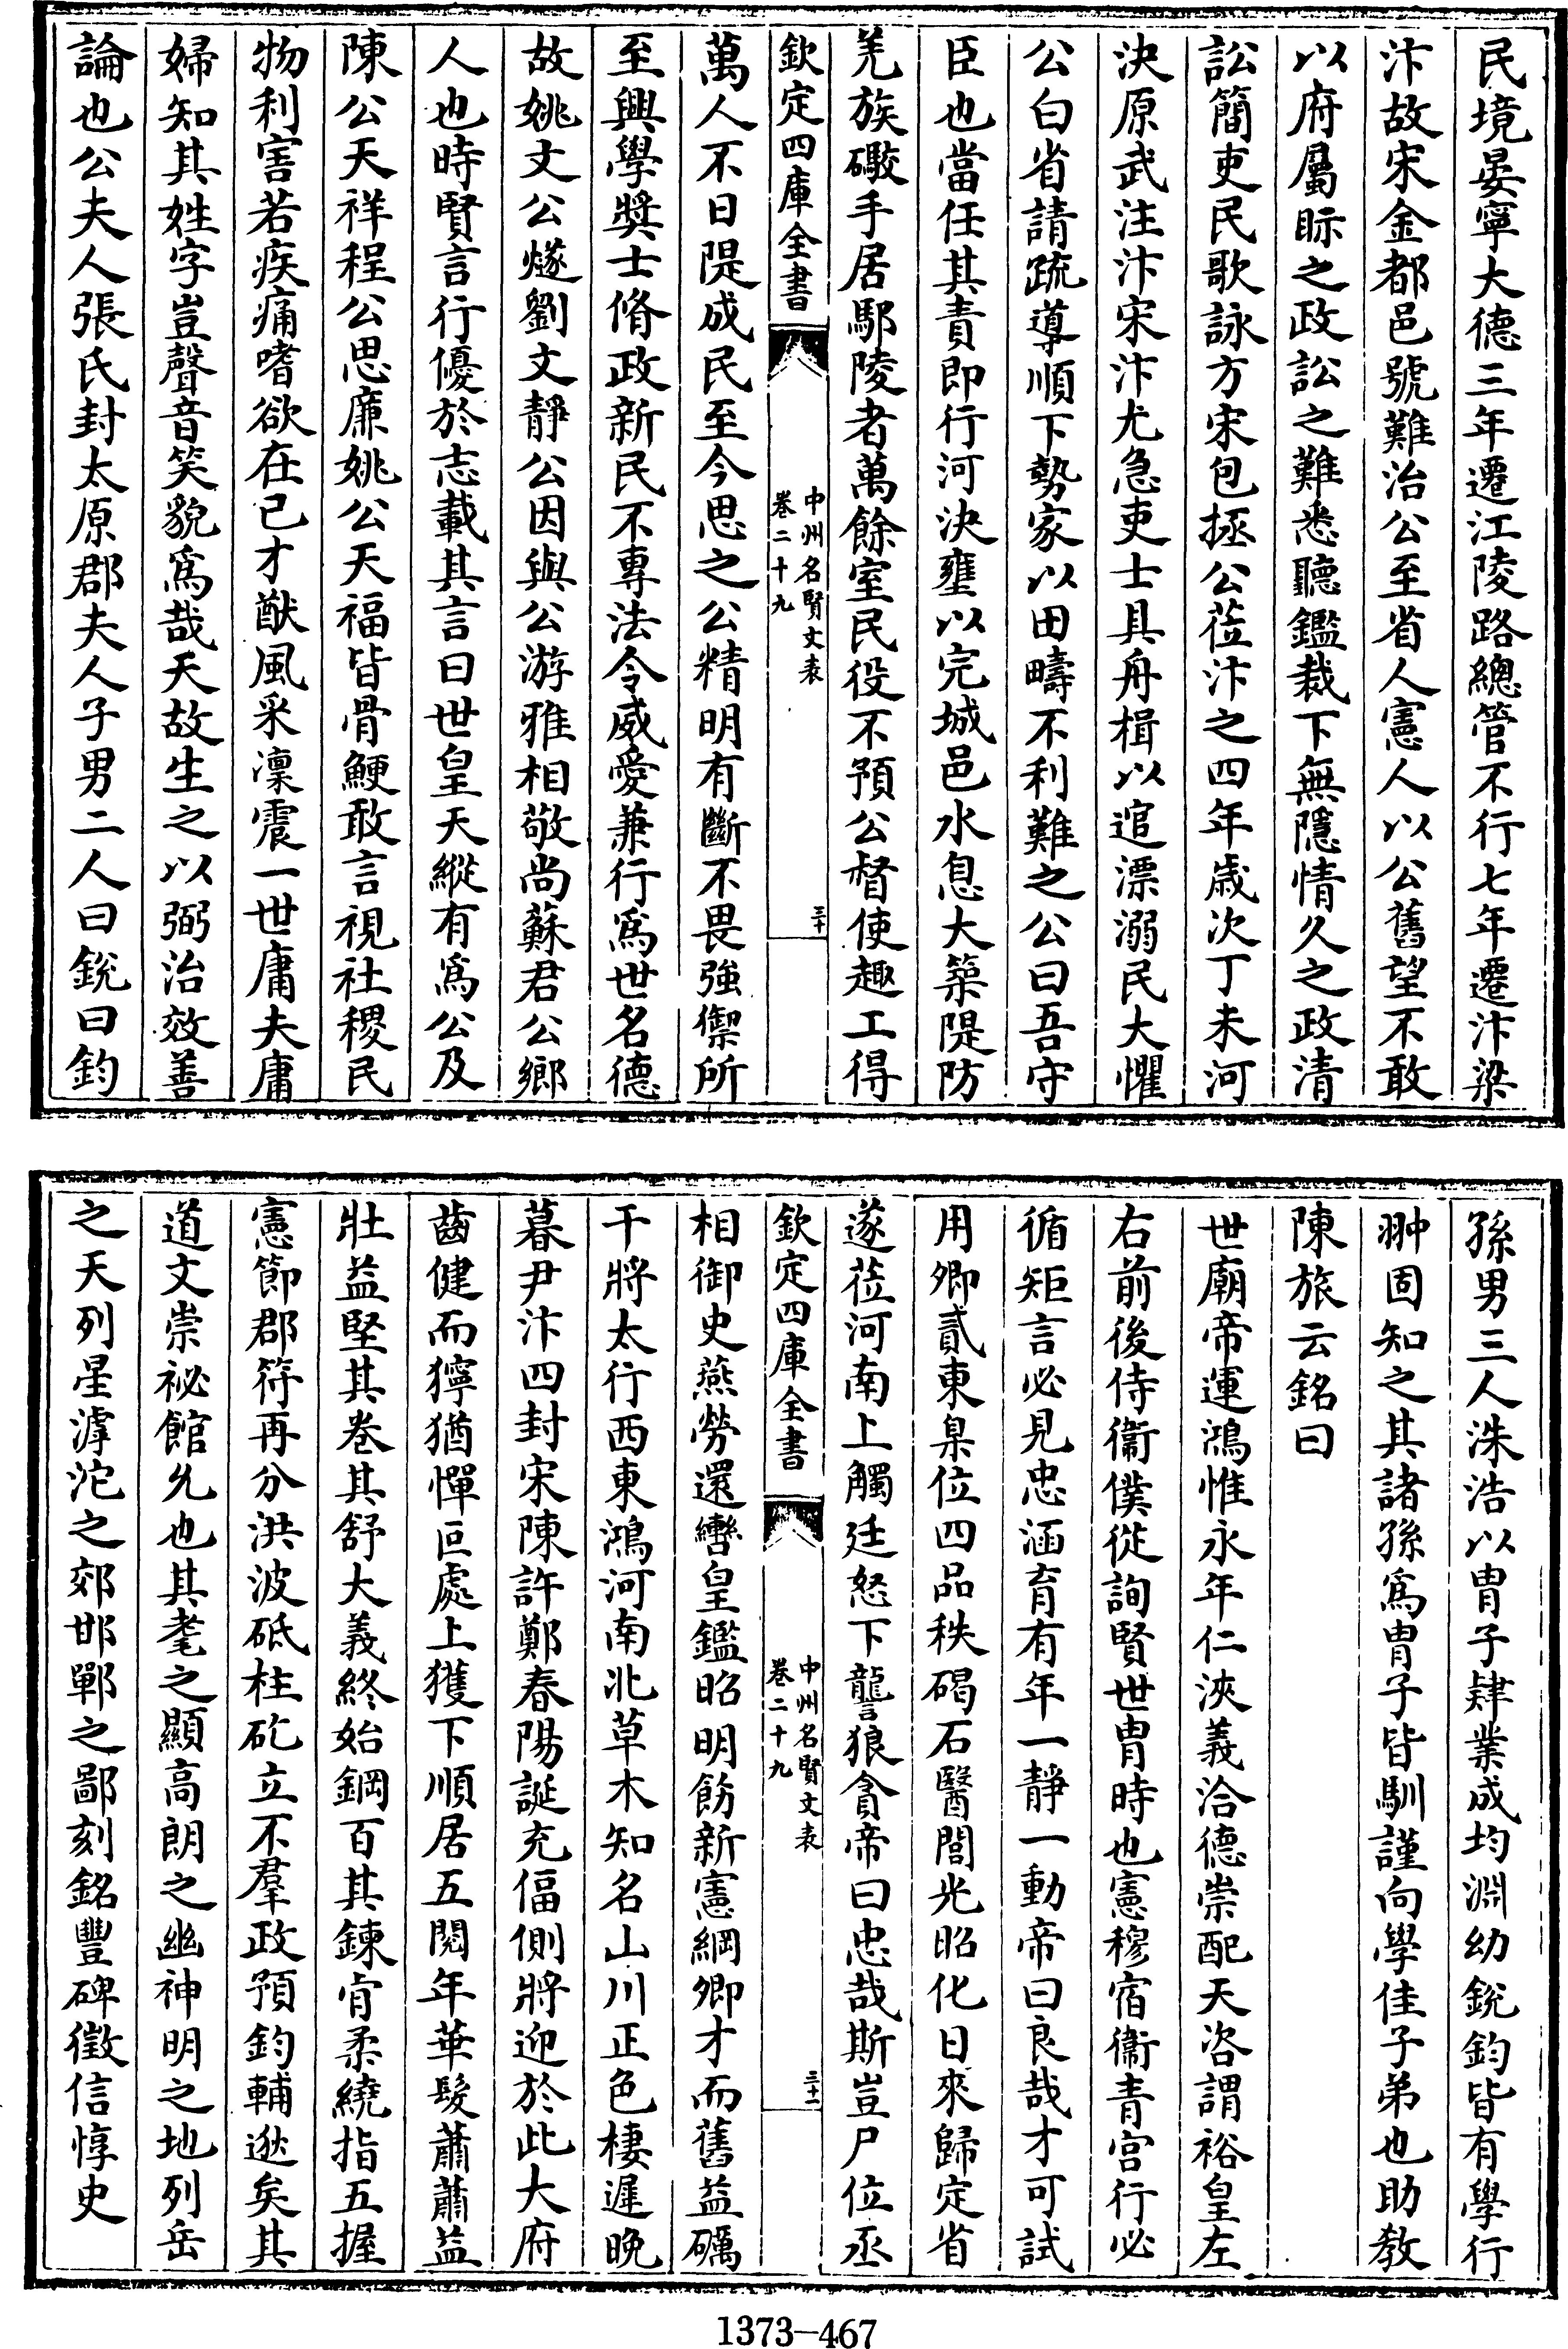 民境晏寧大德三年遷江陵路總管不行七年遷汴梁
汴故宋金都邑號難治公至省人憲人以公舊望不敢
以府屬眎之政訟之難悉聽鑑裁下無隱情久之政清
訟簡吏民歌詠方宋包拯公莅汴之四年歲次丁未河
決原武注汴宋汴尤急吏士具舟楫以逭漂溺民大懼
公白省請疏導順下勢家以田疇不利難之公曰吾守
臣也當任其責即行河決壅以完城邑水息大築隄防
羌族礮手居鄢陵者萬餘室民役不預公督使趣工得
欽定四庫全書
中州名賢文表
卷二十九
三十
萬人不日隄成民至今思之公精明有斷不畏強禦所
至興學獎士脩政新民不專法令威愛兼行為世名德
故姚文公燧劉文靜公因與公游雅相敬尚蘇君公鄉
人也時賢言行優於志載其言曰世皇天縱有為公及
陳公天祥程公思廉姚公天福皆骨鯁敢言視社稷民
物利害若疾痛嗜欲在已才猷風采凜震一世庸夫庸
婦知其姓字豈聲音笑貌為哉天故生之以弼治效善
論也公夫人張氏封太原郡夫人子男二人曰銳曰鈞
孫男三人洙浩以胄子肄業成均淵幼銳鈞皆有學行
翀固知之其諸孫為胄子皆馴謹向學佳子弟也助教
陳旅云銘曰
世廟帝運鴻惟永年仁浹義洽德崇配天咨謂裕皇左
右前後侍衞僕從詢賢世胄時也憲穆宿衞青宮行必
循矩言必見忠涵育有年一靜一動帝曰良哉才可試
用卿貳東臬位四品秩碣石醫閭光昭化日來歸定省
遂莅河南上觸廷怒下讋狼貪帝曰忠哉斯豈尸位丞
欽定四庫全書
中州名賢文表
卷二十九
三十一
相御史燕勞還轡皇鑑昭明飭新憲綱卿才而舊益礪
干將太行西東鴻河南北草木知名山川正色棲遲晚
暮尹汴四封宋陳許鄭春陽誕充偪側將迎於此大府
齒健而獰猶憚叵處上獲下順居五閱年華髮蕭蕭益
壯益堅其卷其舒大義終始鋼百其鍊肯柔繞指五握
憲節郡符再分洪波砥柱矻立不羣政預鈞輔逖矣其
道文崇祕館允也其耄之顯高朗之幽神明之地列岳
之天列星滹沱之郊邯鄲之鄙刻銘豐碑徵信惇史
1373-467